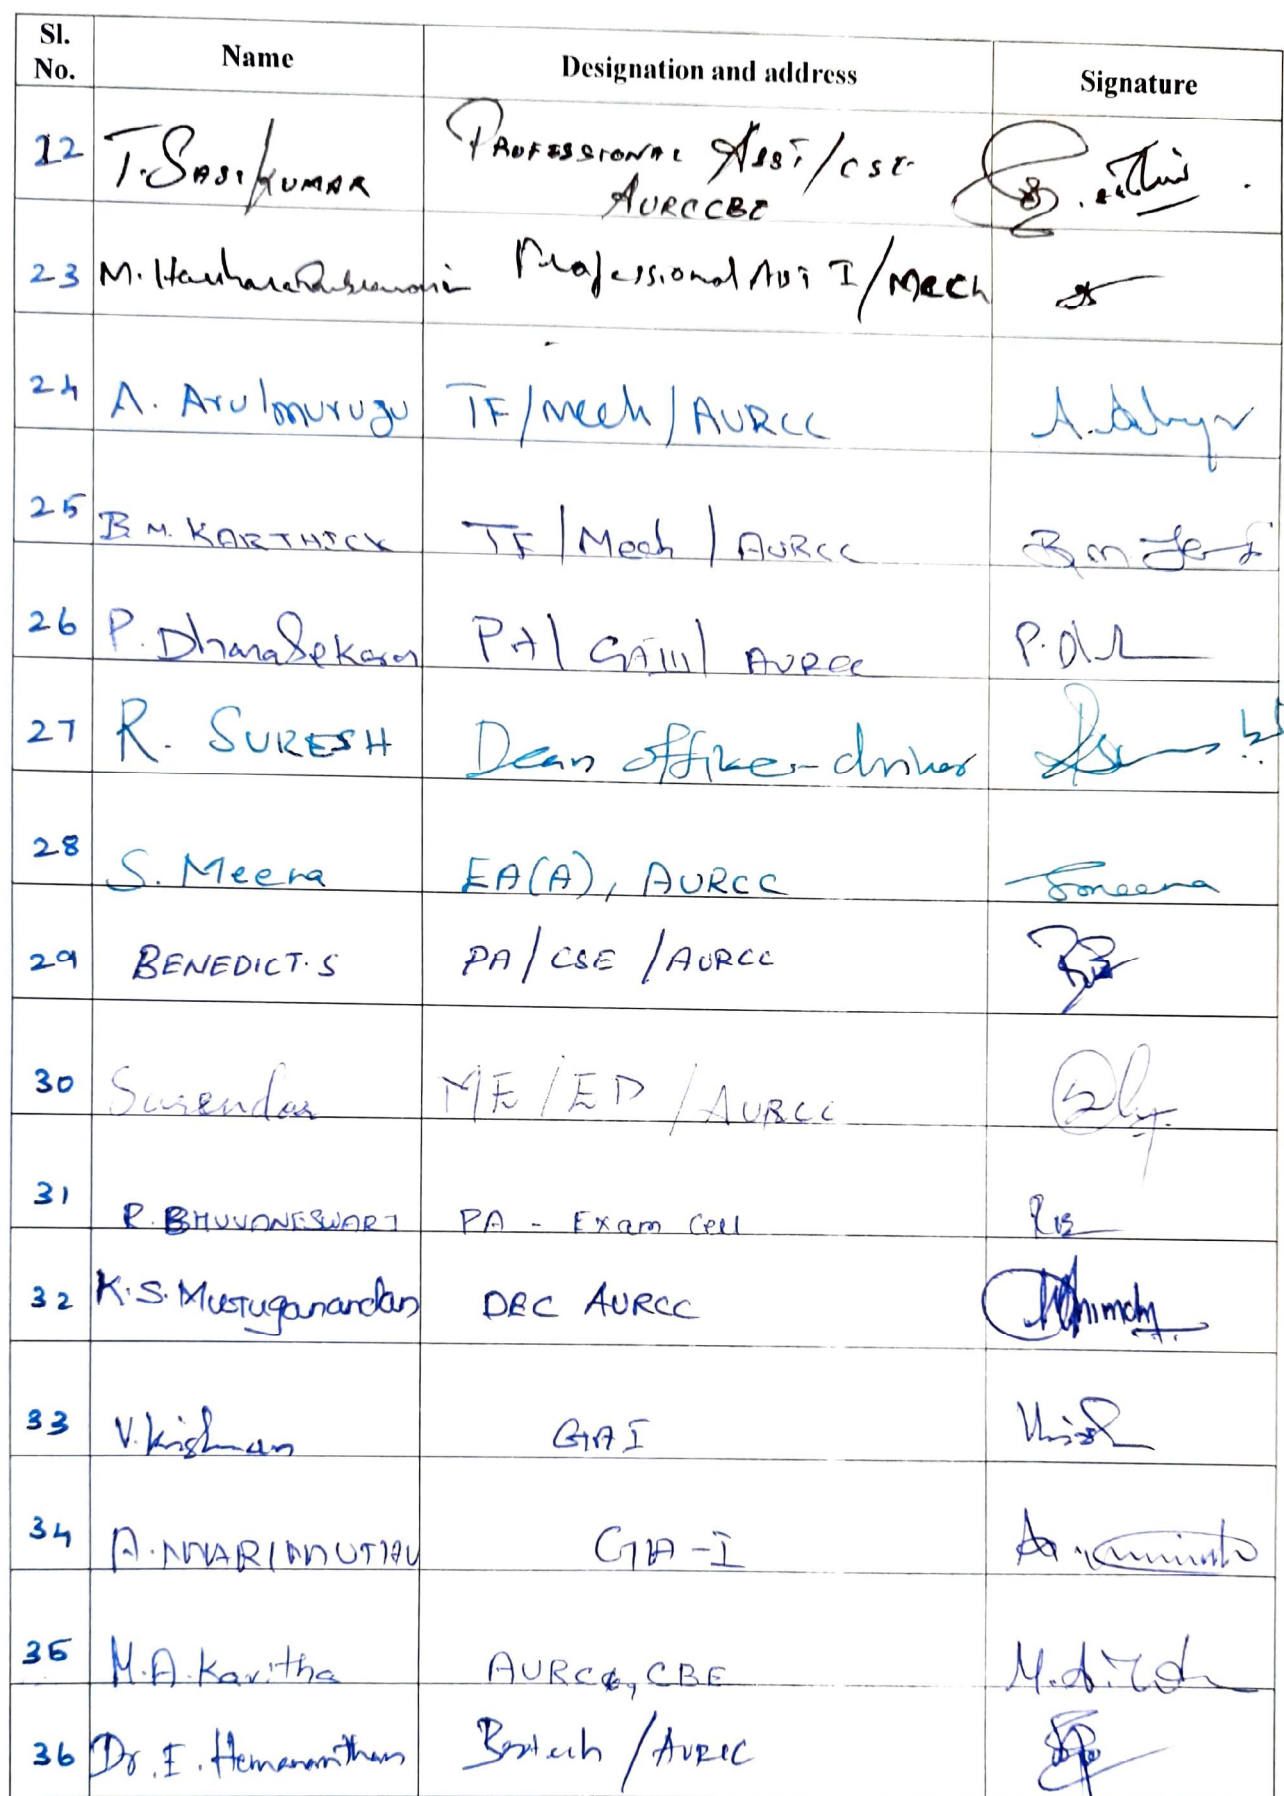 Sl. No. Name Designation and address Signature
12 T. SASIKUMAR PROFESSIONAL ASST/CSE
AURCCBE
23 M. Professional Asst I/Mech
24 A. Arulmurugu TF/Mech/AURCC
25 B.M. KARTHICK TF/Mech/AURCC B.m
26 P. DhanaSekaran PA/GAIII/AURCC P.D
27 R. SURESH Dean office-driver
28 S. Meena EA(A), AURCC Smeena
29 BENEDICT.S PA/CSE/AURCC
30 Surendar ME/ED/AURCC
31 R. BHUVANESWARI PA - Exam Cell
32 K.S. Muruganandan AURCC
33 V. Krishnan GA I
34 A. MARIMUTHU GA-I
35 M.A. Kavitha AURCC, CBE
36 Dr. E. /AURCC